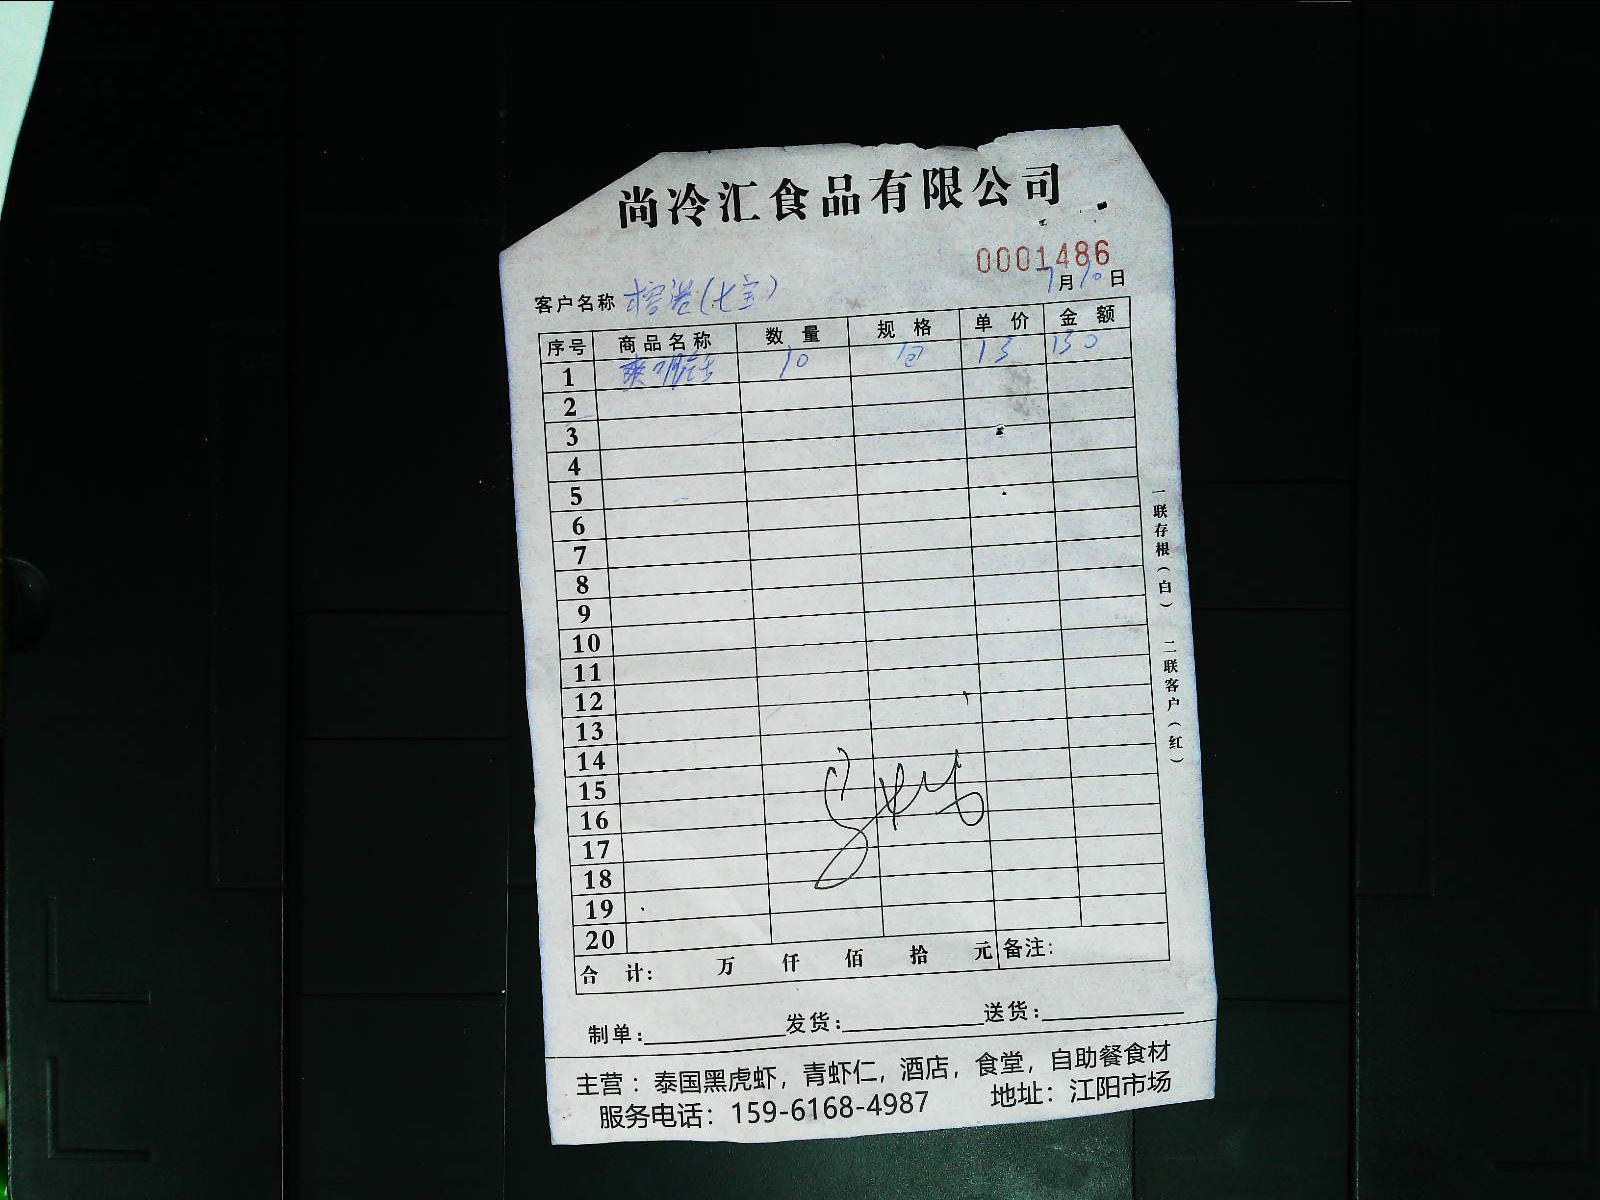 尚冷汇食品有限公司
0001486
7月10日
客户名称 (七宝)
序号 商品名称 数量 规格 单价 金额
1 10 包 13 130
2
3
4
5
6
7
8
9
10
11
12
13
14
15
16
17
18
19
20
合 计: 万 仟 佰 拾 元 备注:
制单: 发货: 送货:
主营：泰国黑虎虾，青虾仁，酒店，食堂，自助餐食材
服务电话：159-6168-4987 地址：江阳市场
一联存根（白） 二联客户（红）